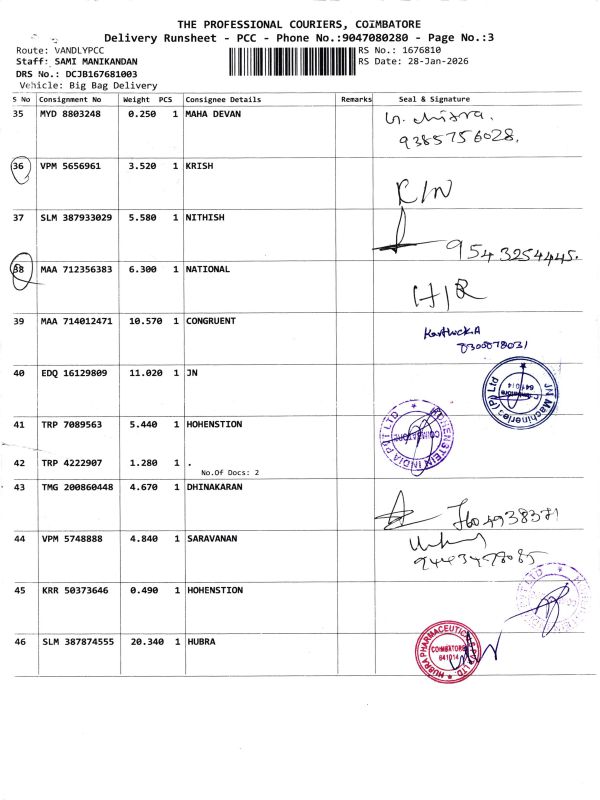 THE PROFESSIONAL COURIERS, COIMBATORE
Delivery Runsheet - PCC - Phone No.:9047080280 - Page No.:3
Route: VANDLYPCC
RS No.: 1676810
Staff: SAMI MANIKANDAN
RS Date: 28-Jan-2026
DRS No.: DCJB167681003
Vehicle: Big Bag Delivery
S No Consignment No Weight PCS Consignee Details Remarks Seal & Signature
35 MYD 8803248 0.250 1 MAHA DEVAN
9385756028.
36 VPM 5656961 3.520 1 KRISH
R/N
37 SLM 387933029 5.580 1 NITHISH
9543254445.
38 MAA 712356383 6.300 1 NATIONAL
H/R
39 MAA 714012471 10.570 1 CONGRUENT
Karthick.A
8300078031
40 EDQ 16129809 11.020 1 JN
JN Machineries (P) Ltd
641014
41 TRP 7089563 5.440 1 HOHENSTION
HOHENSTEIN INDIA PVT LTD
COIMBATORE
42 TRP 4222907 1.280 1 .
No.Of Docs: 2
43 TMG 200860448 4.670 1 DHINAKARAN
7604938371
44 VPM 5748888 4.840 1 SARAVANAN
9443478085
45 KRR 50373646 0.490 1 HOHENSTION
46 SLM 387874555 20.340 1 HUBRA
HUBRA PHARMACEUTICALS PVT LTD.
COIMBATORE
641014